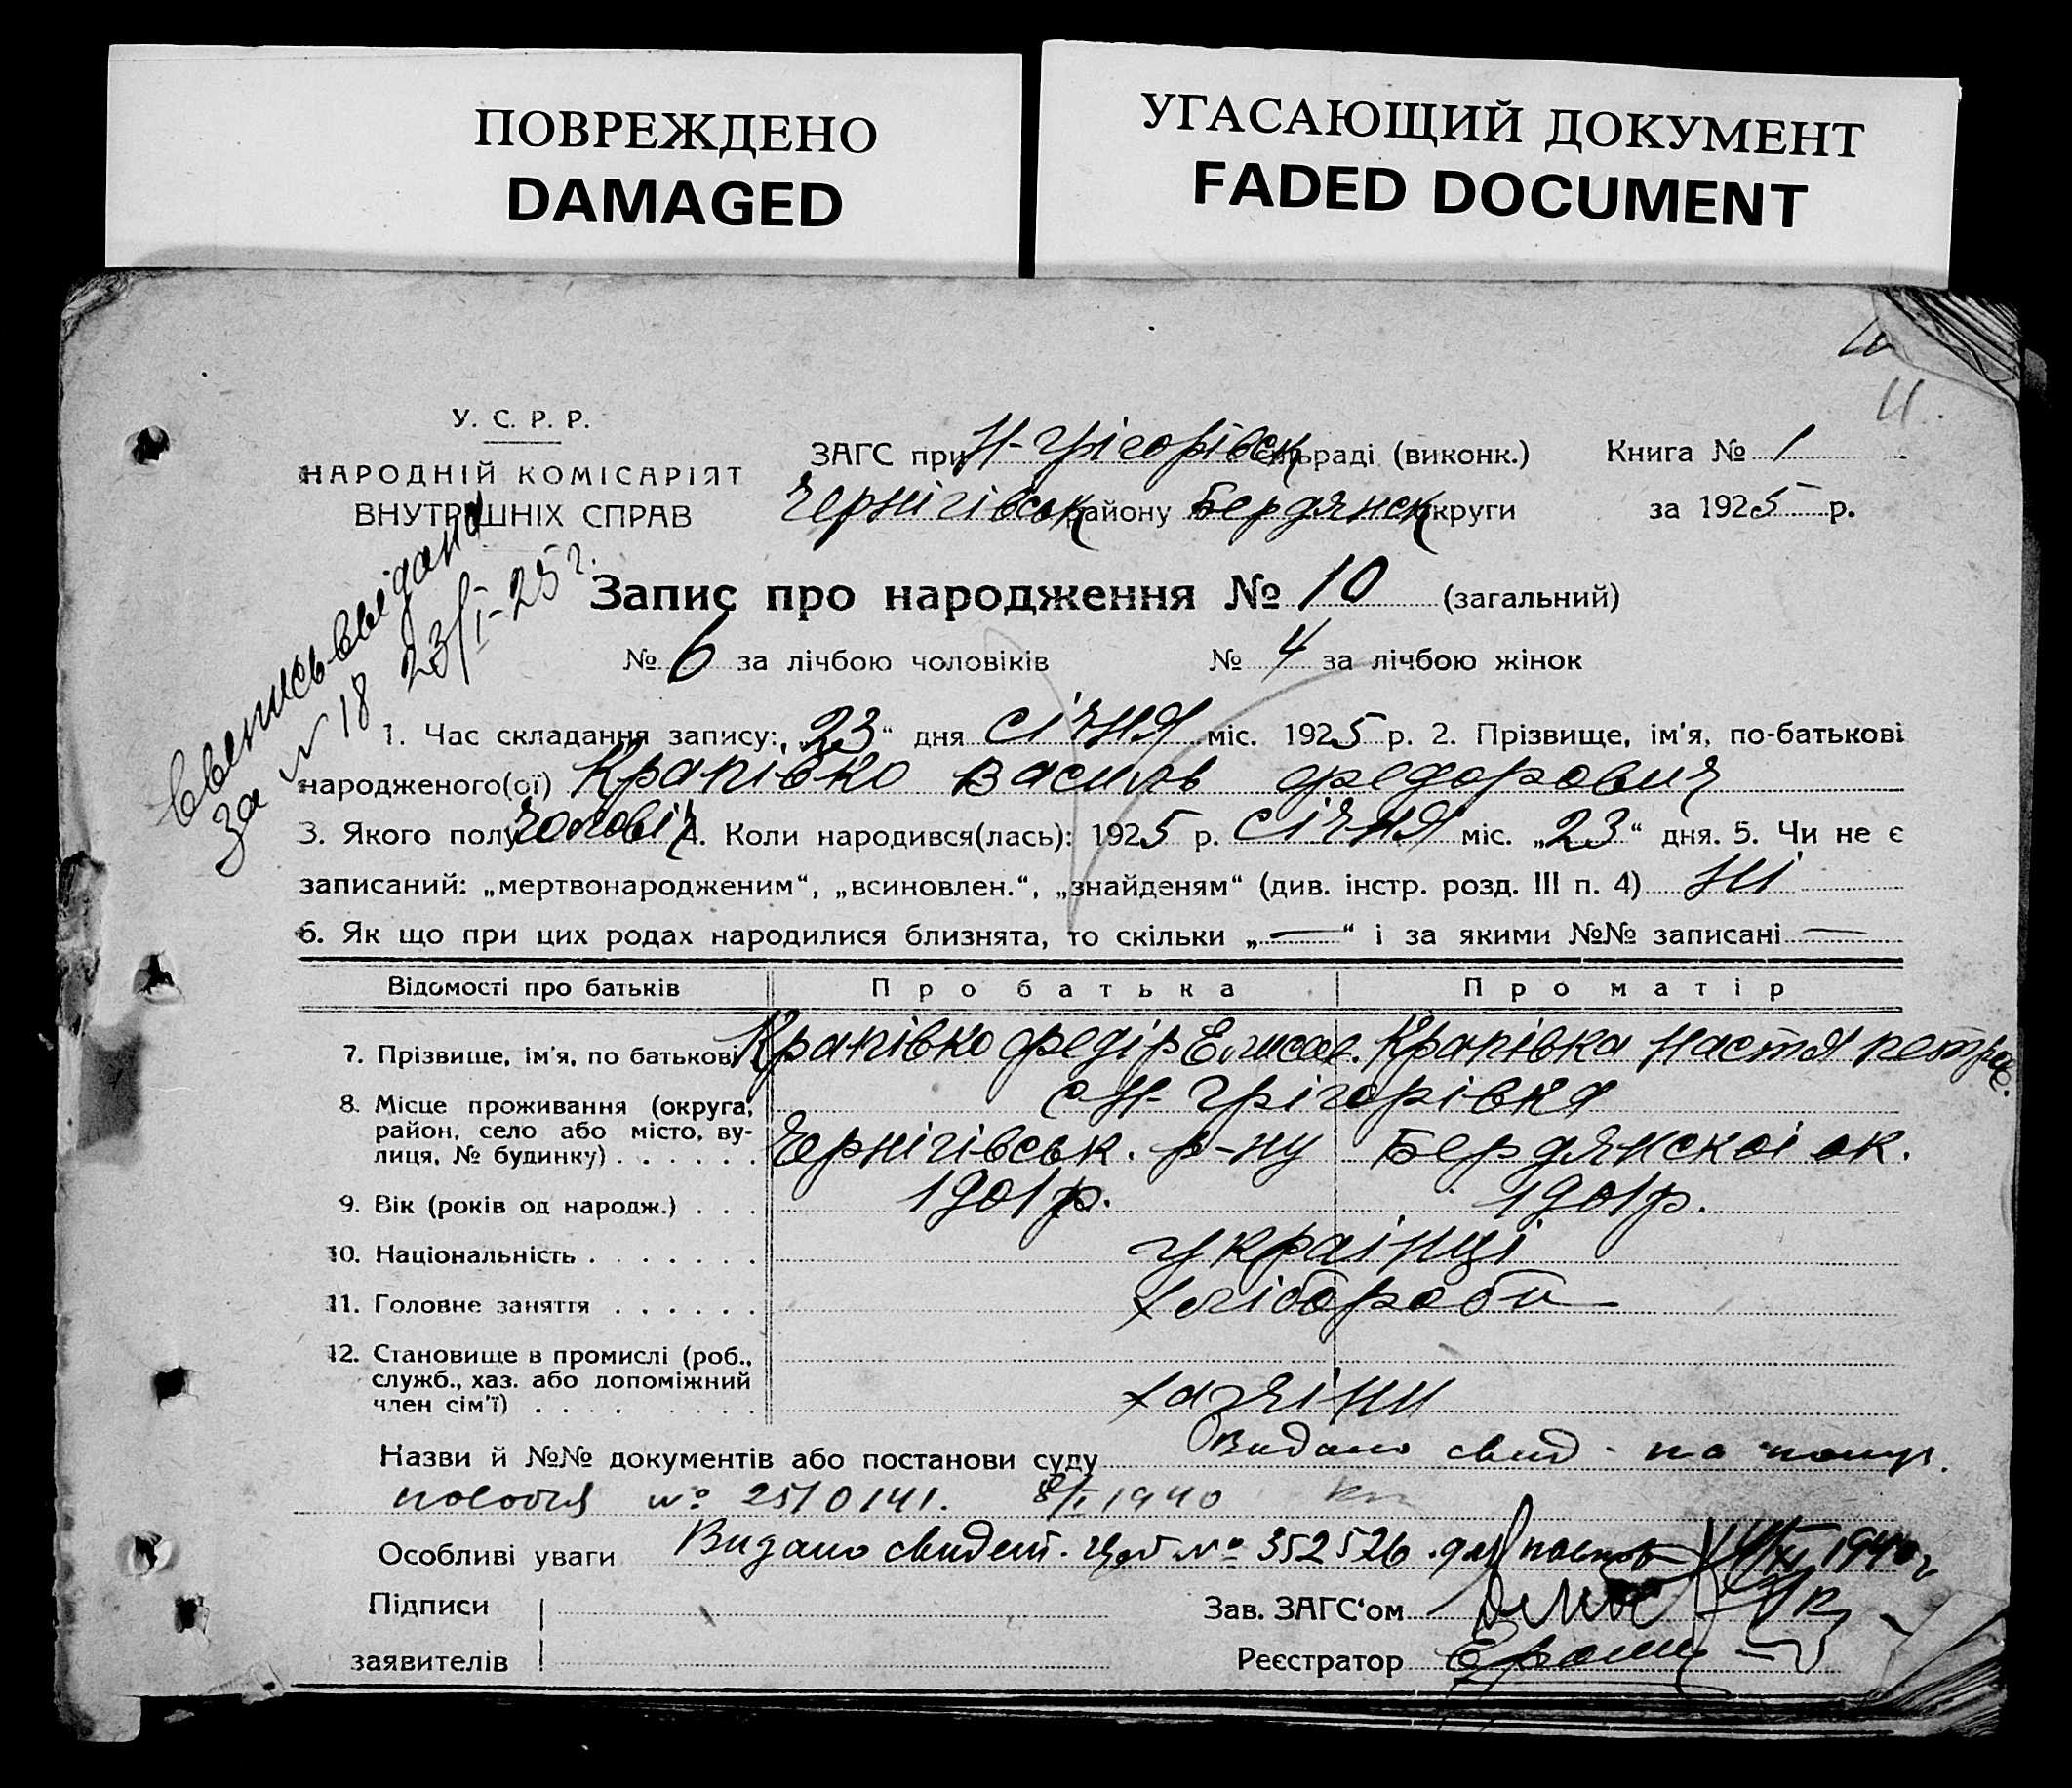 ПОВРЕЖДЕНО
DAMAGED
УГАСАЮЩИЙ ДОКУМЕНТ
FADED DOCUMENT
11.
У. С. Р. Р.
НАРОДНІЙ КОМІСАРІЯТ
ВНУТРІШНІХ СПРАВ
ЗАГС при Н-Грігорівск сільраді (виконк.) Книга № 1
Чернігівськ району Бердянск округи за 1925 р.
видана
за № 18 23/I-25 г.
Запис про народження № 10 (загальний)
№ 6 за лічбою чоловіків № 4 за лічбою жінок
1. Час складання запису: „23“ дня січня міс. 1925 р. 2. Прізвище, ім'я, по-батькові
народженого(ої) Крапівко Василь Федорович
3. Якого полу чоловіч 4. Коли народився(лась): 1925 р. січня міс. „23“ дня. 5. Чи не є
записаний: „мертвонародженим“, „всиновлен.“, „знайденям“ (див. інстр. розд. III п. 4) ні
6. Як що при цих родах народилися близнята, то скільки „—“ і за якими №№ записані —
Відомості про батьків Про батька Про матір
7. Прізвище, ім'я, по батькові Крапівко Федір Елисов. Крапівка Настя петров.
8. Місце проживання (округа, с Н-Грігорівка
район, село або місто, ву-
лиця, № будинку) . . . . . . Чернігівськ. р-ну Бердянскоі ок.
9. Вік (років од народж.) . . . 1901 р. 1901 р.
10. Національність . . . . . . . украінці
11. Головне заняття . . . . . . хлібороби
12. Становище в промислі (роб.,
служб., хаз. або допоміжний
член сім'ї) . . . . хазяіни
Назви й №№ документів або постанови суду Видано свид. на
№ 2510141. 8/I 1940
Особливі уваги Видано свидет. № 352526 для 1940 г
Підписи
заявителів
Зав. ЗАГС'ом
Реєстратор